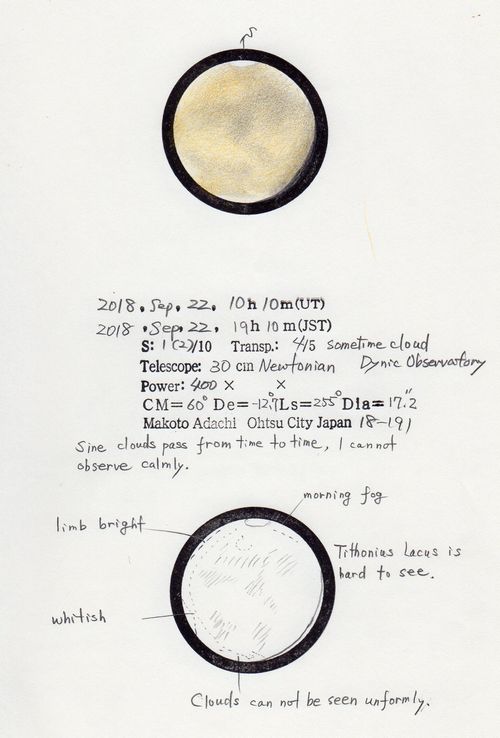 S
2018, Sep. 22, 10h 10m(UT)
2018, Sep. 22, 19h 10m(JST)
S: 1(2)/10 Transp.: 4/5 sometime cloud
Telescope: 30 cm Newtonian Dynic Observastory
Power: 400 × ×
CM= 60° De= -12.°7 Ls= 255° Dia= 17."2
Makoto Adachi Ohtsu City Japan 18-191
Sine clouds pass from time to time, I cannot
observe calmly.
morning fog
limb bright
Tithonius Lacus is
hard to see.
whitish
Clouds can not be seen unformly.